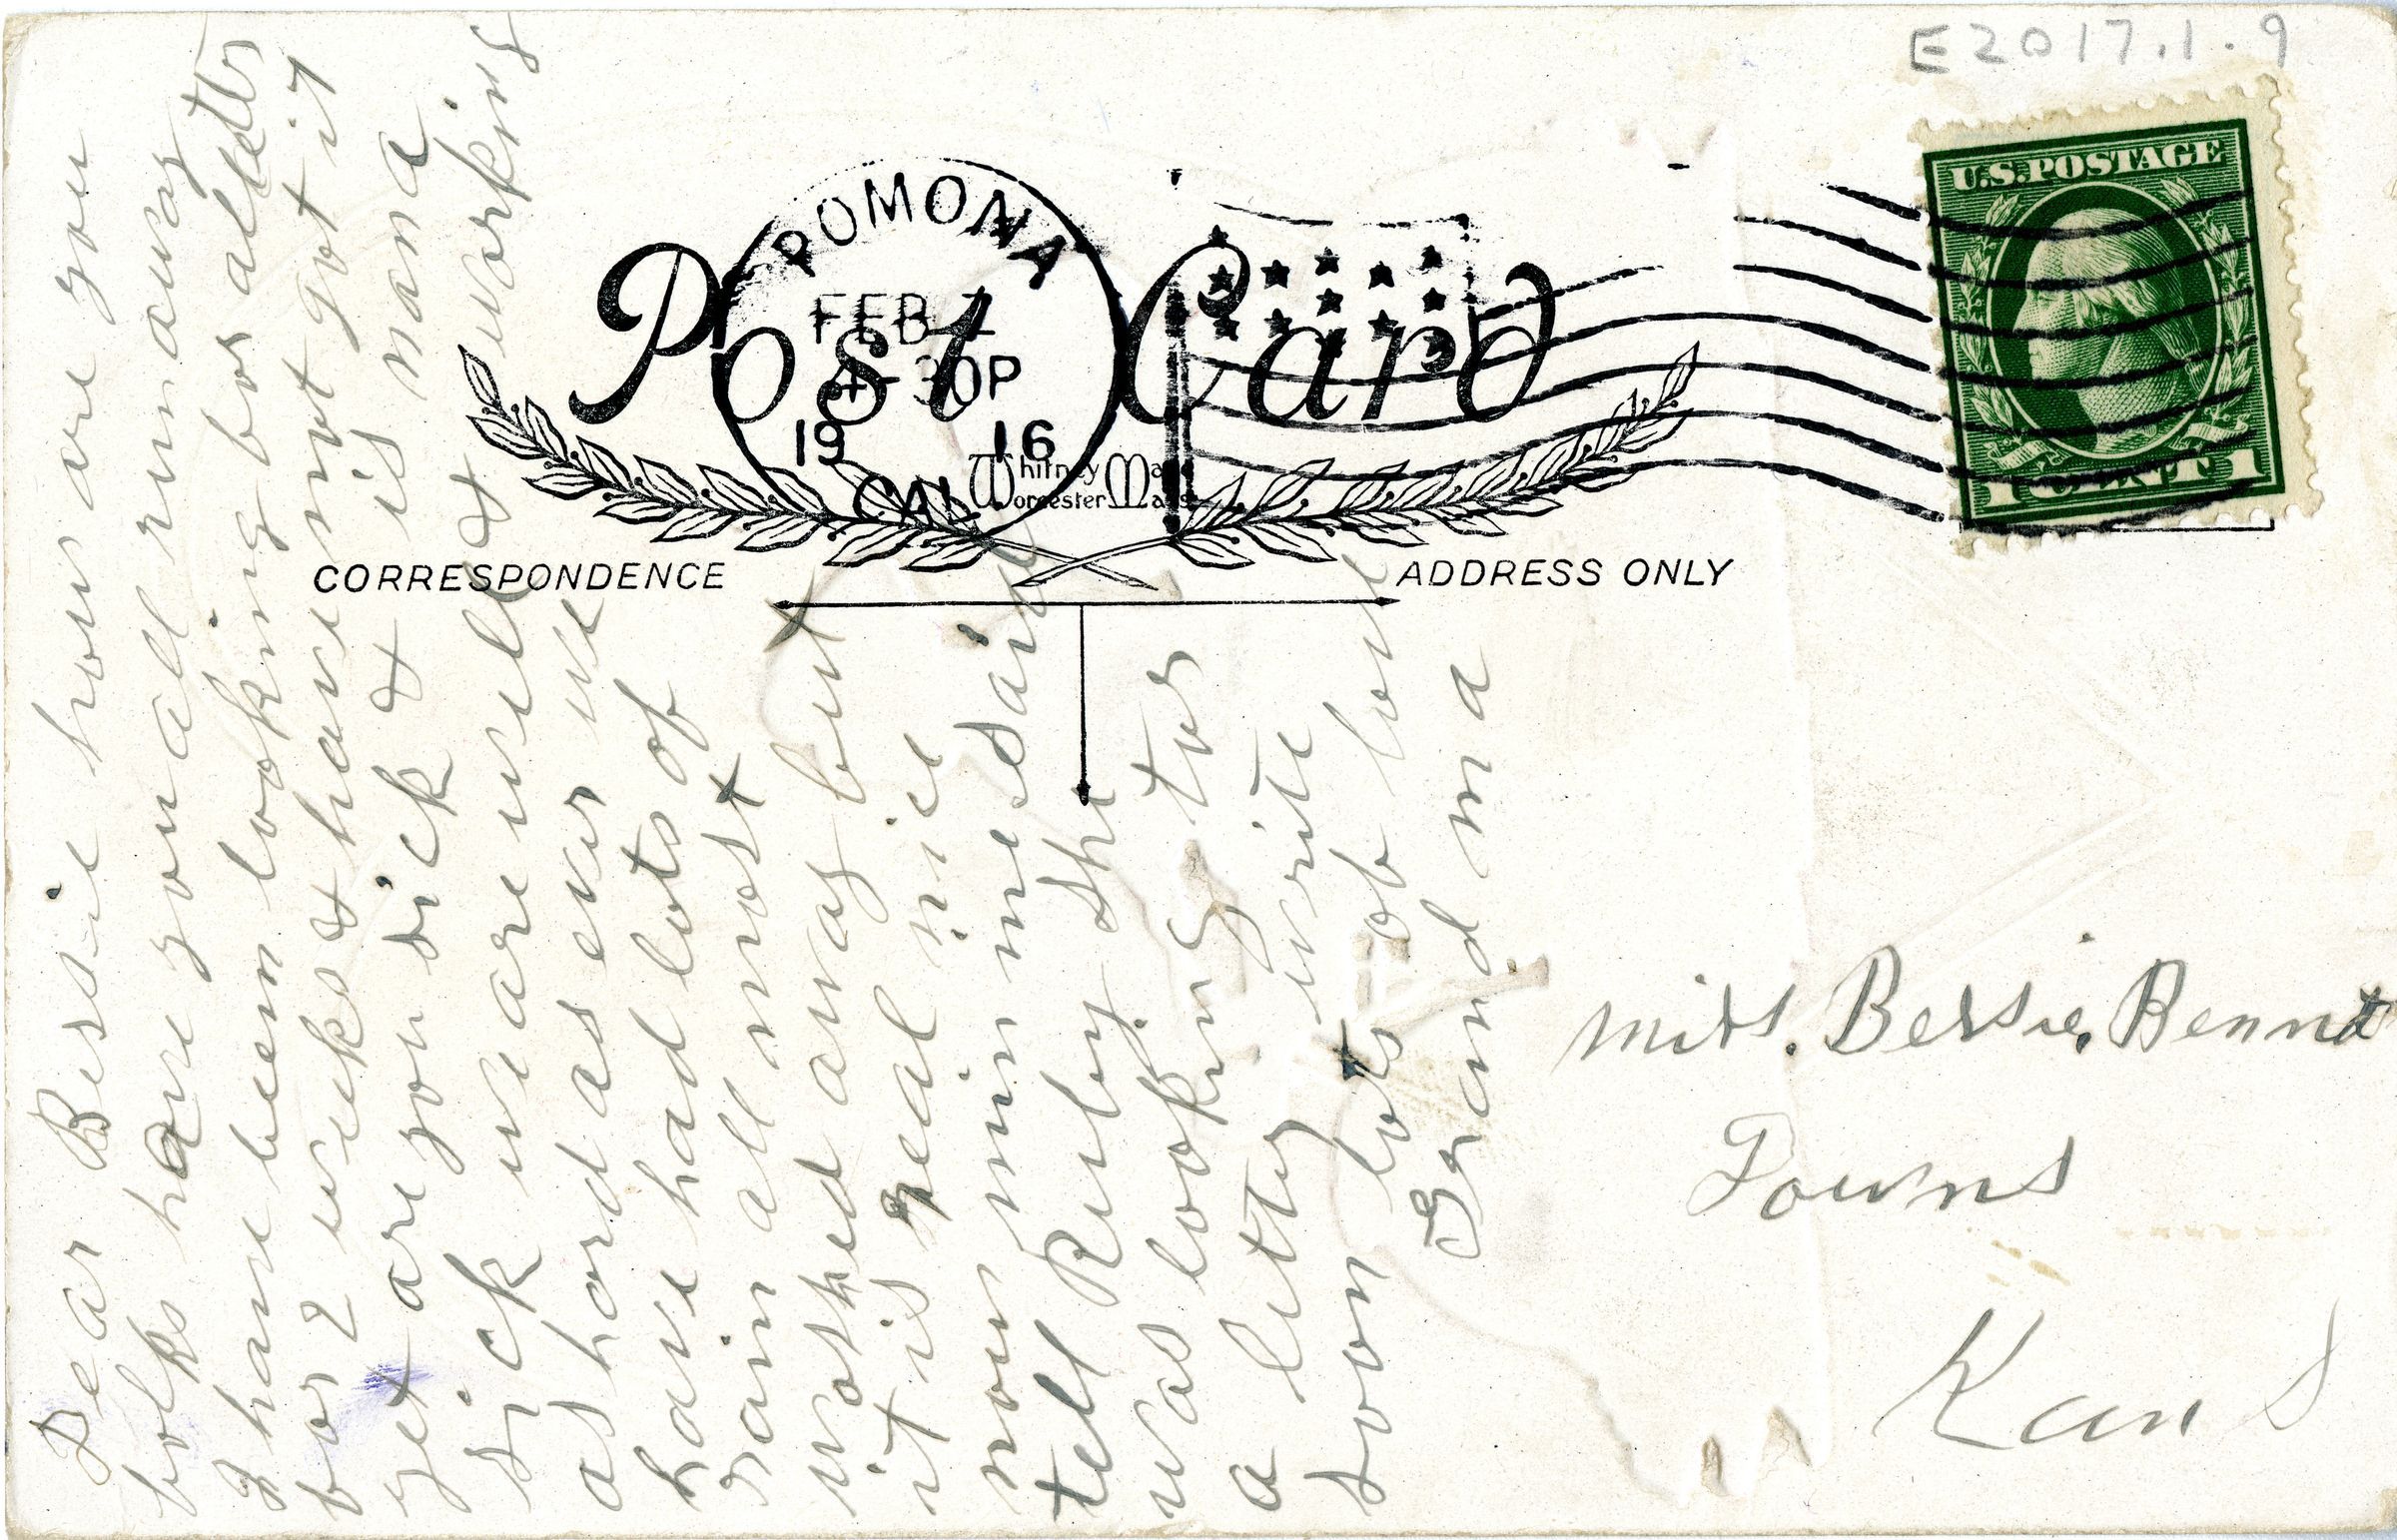 E2017.1.9
U.S. POSTAGE
1 CENT 1
POMONA
FEB 7
4-30P
1916
CAL
Post Card
Whitney Made
Worcester Mass
CORRESPONDENCE
ADDRESS ONLY
Dear Bessie how are you
folks hare you all run away
I have been looking for a letter
for 2 weeks & have not got it
yet are you sick & is mama
sick we are well & working
as hard as ever we
have had lots of
rain all most
washed away but
it is real nice
now min me said
tell Ruby she
was looking for
a letter write
soon lots of love
Grand ma
Miss. Bessie, Bennet
Downs
Kans